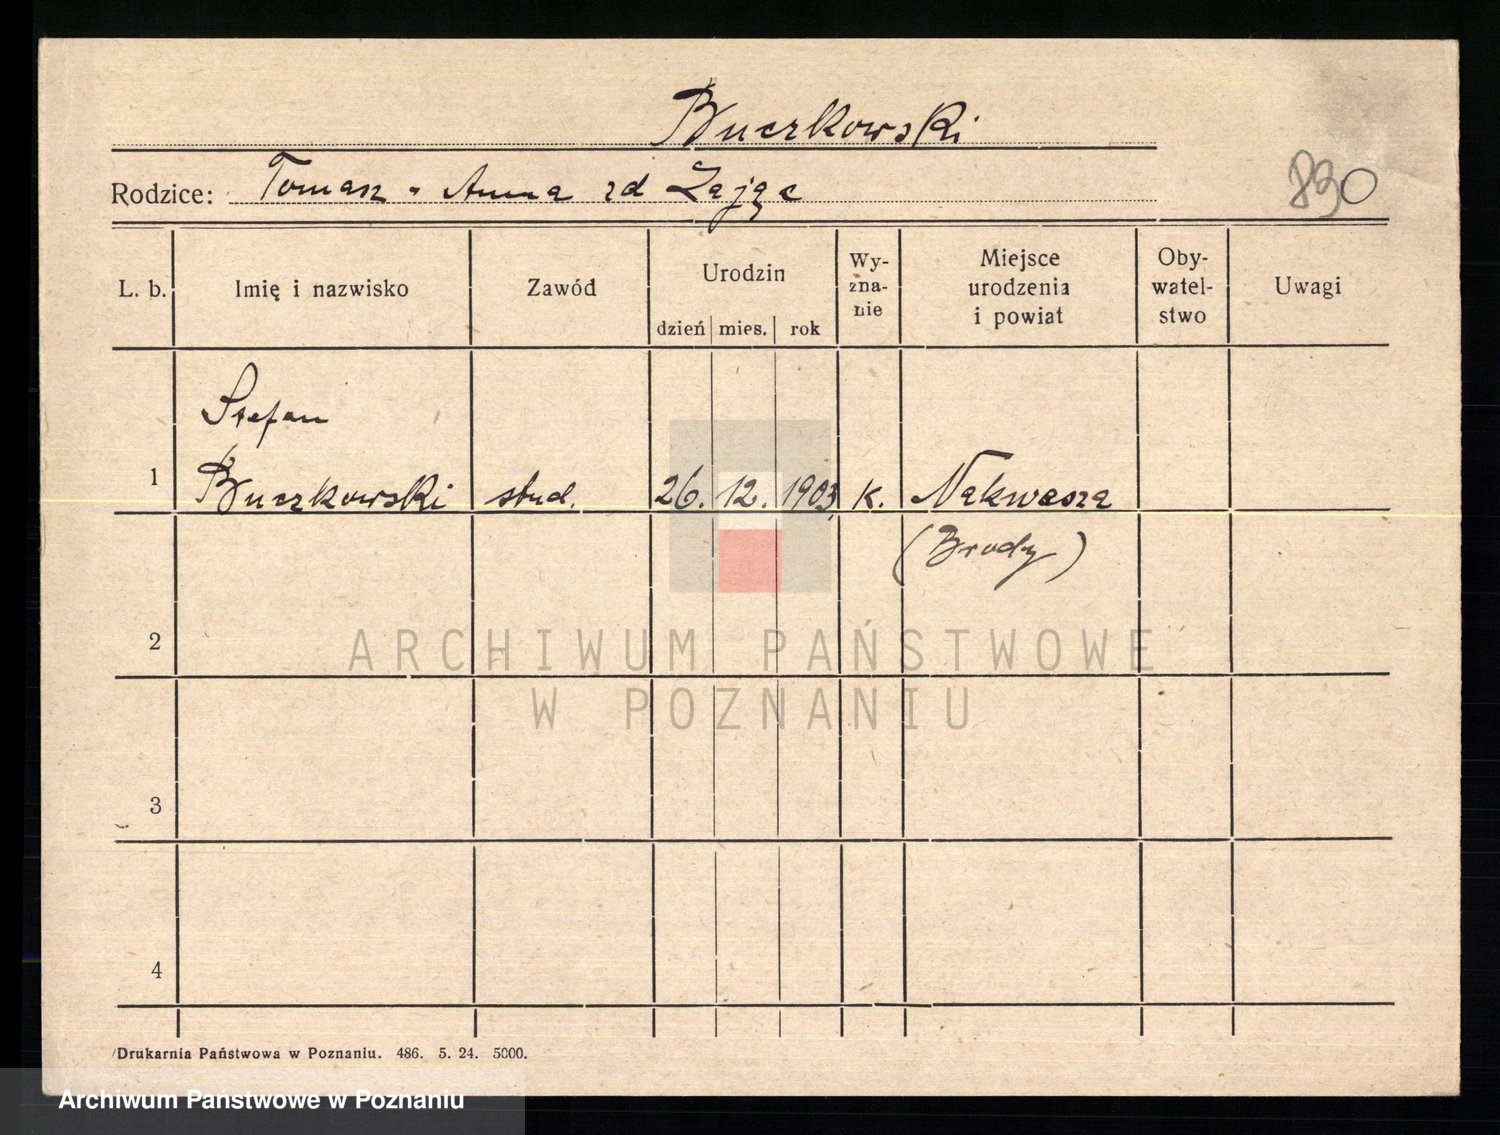 Buczkowski
Rodzice: Tomasz - Anna zd Zając
830
L. b. Imię i nazwisko Zawód Urodzin dzień mies. rok Wy-zna-nie Miejsce urodzenia i powiat Oby-watel-stwo Uwagi
Stefan
1 Buczkowski stud. 26. 12. 1903 k. Nakwasza
(Brody)
2
ARCHIWUM PAŃSTWOWE
W POZNANIU
3
4
Drukarnia Państwowa w Poznaniu. 486. 5. 24. 5000.
Archiwum Państwowe w Poznaniu